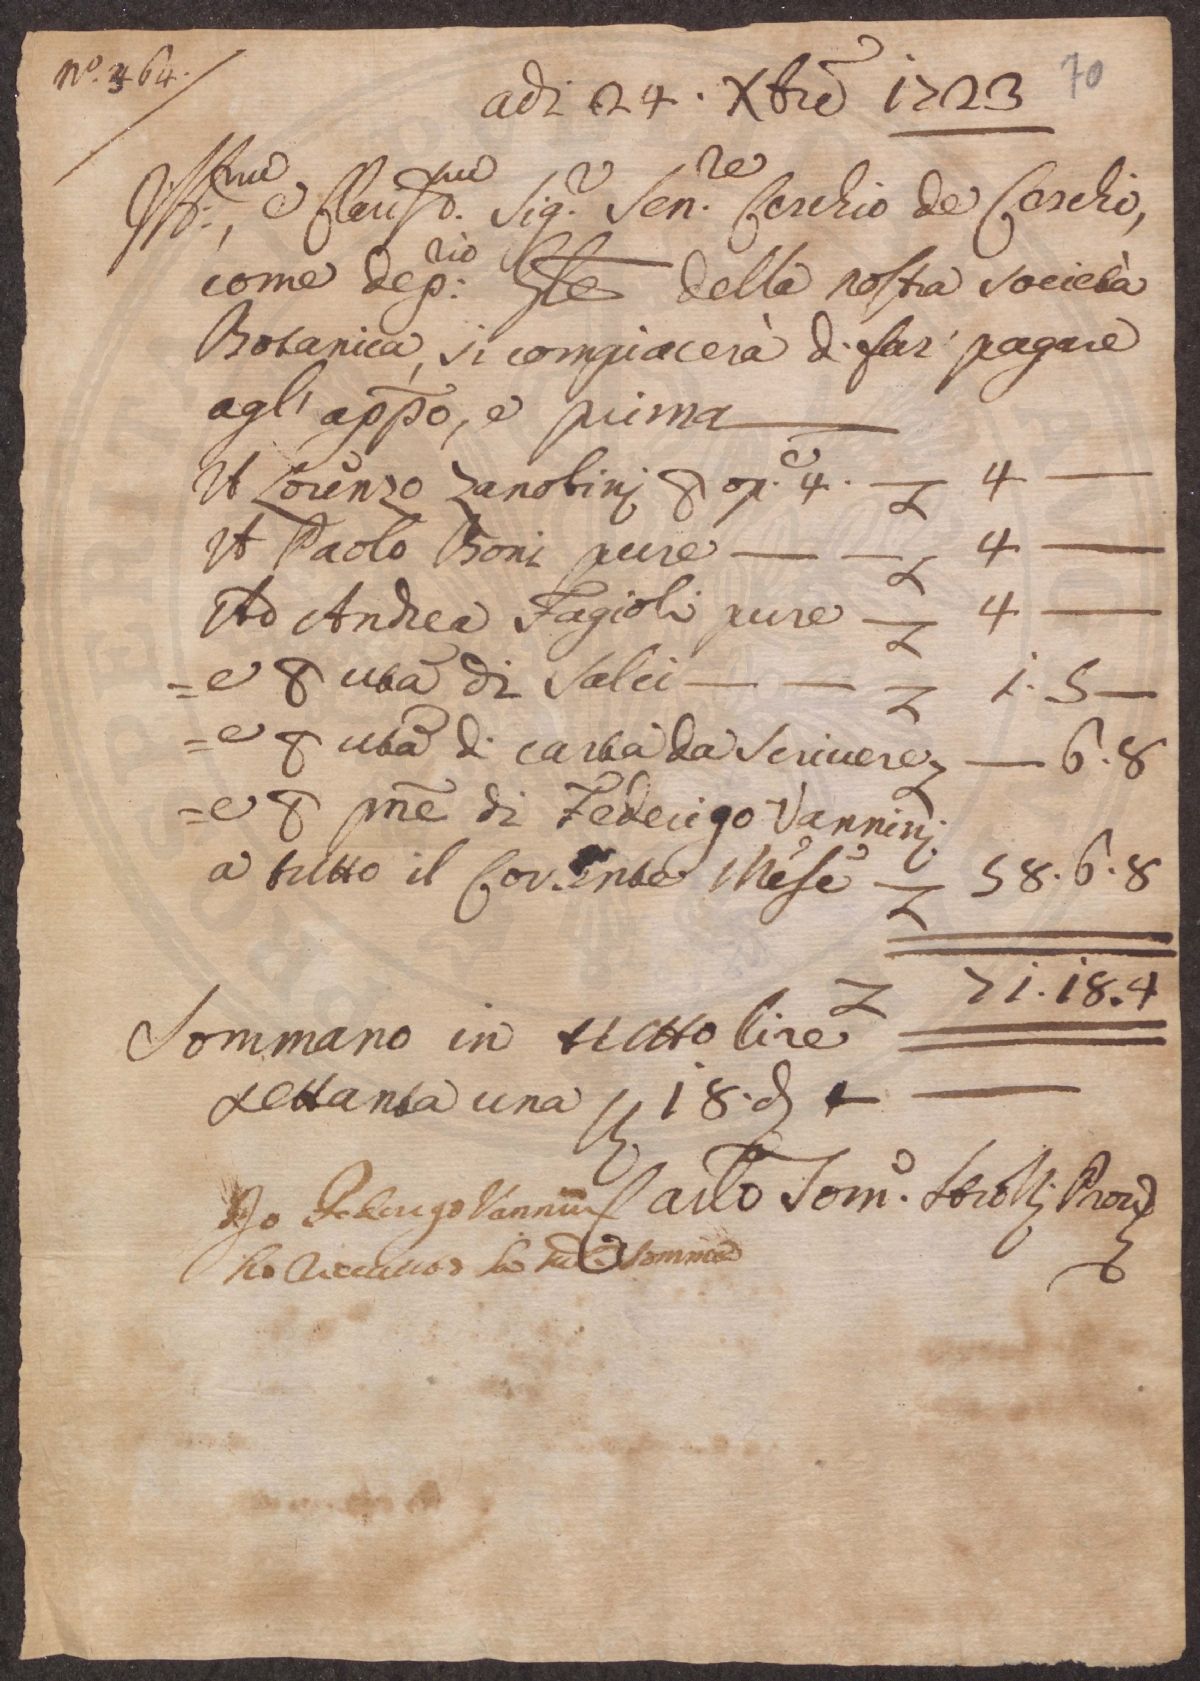 N.o 364.
70
adi 24. Xbre 1723
Ill.mo, e Clariss.mo Sig.r Sen.re Cerchio de Cerchi,
come dep.rio della nostra società
Botanica, si compiacerà di far pagare
agl' appo, e prima
A Lorenzo Zanobini p op.e 4. — £ 4 —
A Paolo Boni pure — — £ 4 —
Ad Andrea Fagioli pure — £ 4 —
= e p uta di Salci — — £ 1. 5 —
= e p uta di carta da scrivere £ — 6. 8
= e p pne di Federigo Vannini
a tutto il corrente Mese — £ 58. 6. 8
£ 71. 18. 4
Sommano in tutto lire
settanta una s 18. d 4 —
Carlo Tom.o Strozzi Prov.
Io Federigo Vannini
ho riceuuto la sud.a somma